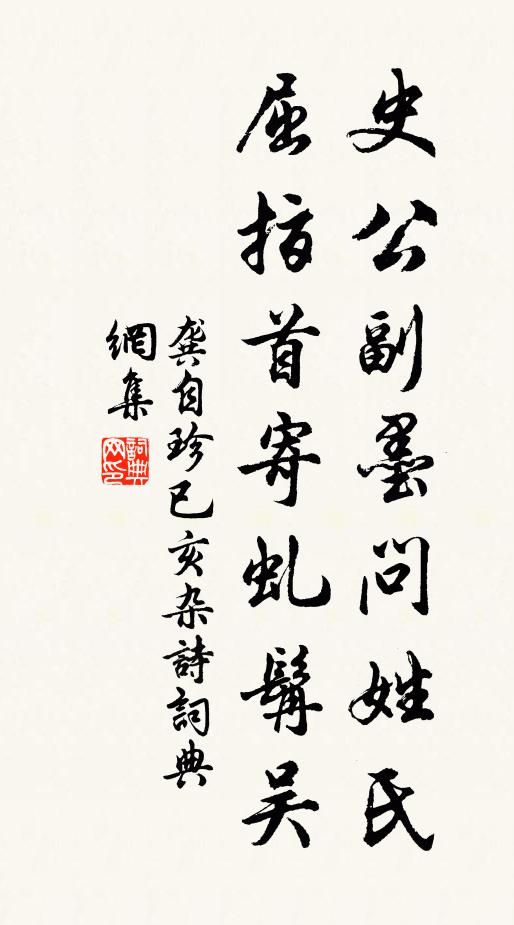 史公副墨問姓氏
屈指首寄虬髯吴
龔自珍己亥杂詩詞典
網集
詞典
网印